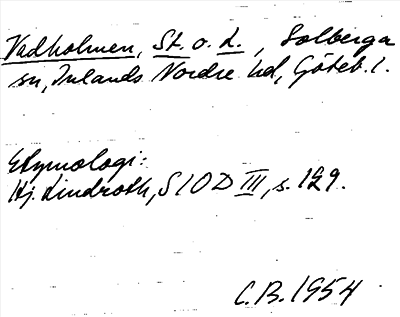 Vadholmen, St. o. L., Solberga
sn, Inlands Nordre hd, Göteb. l.
Etymologi:
Hj. Lindroth, SIOD III, s. 129.
C.B. 1954